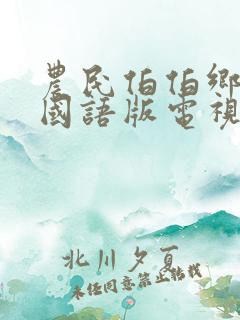 農民伯伯鄉
國語版電視
北川夕夏
未经同意禁止转载